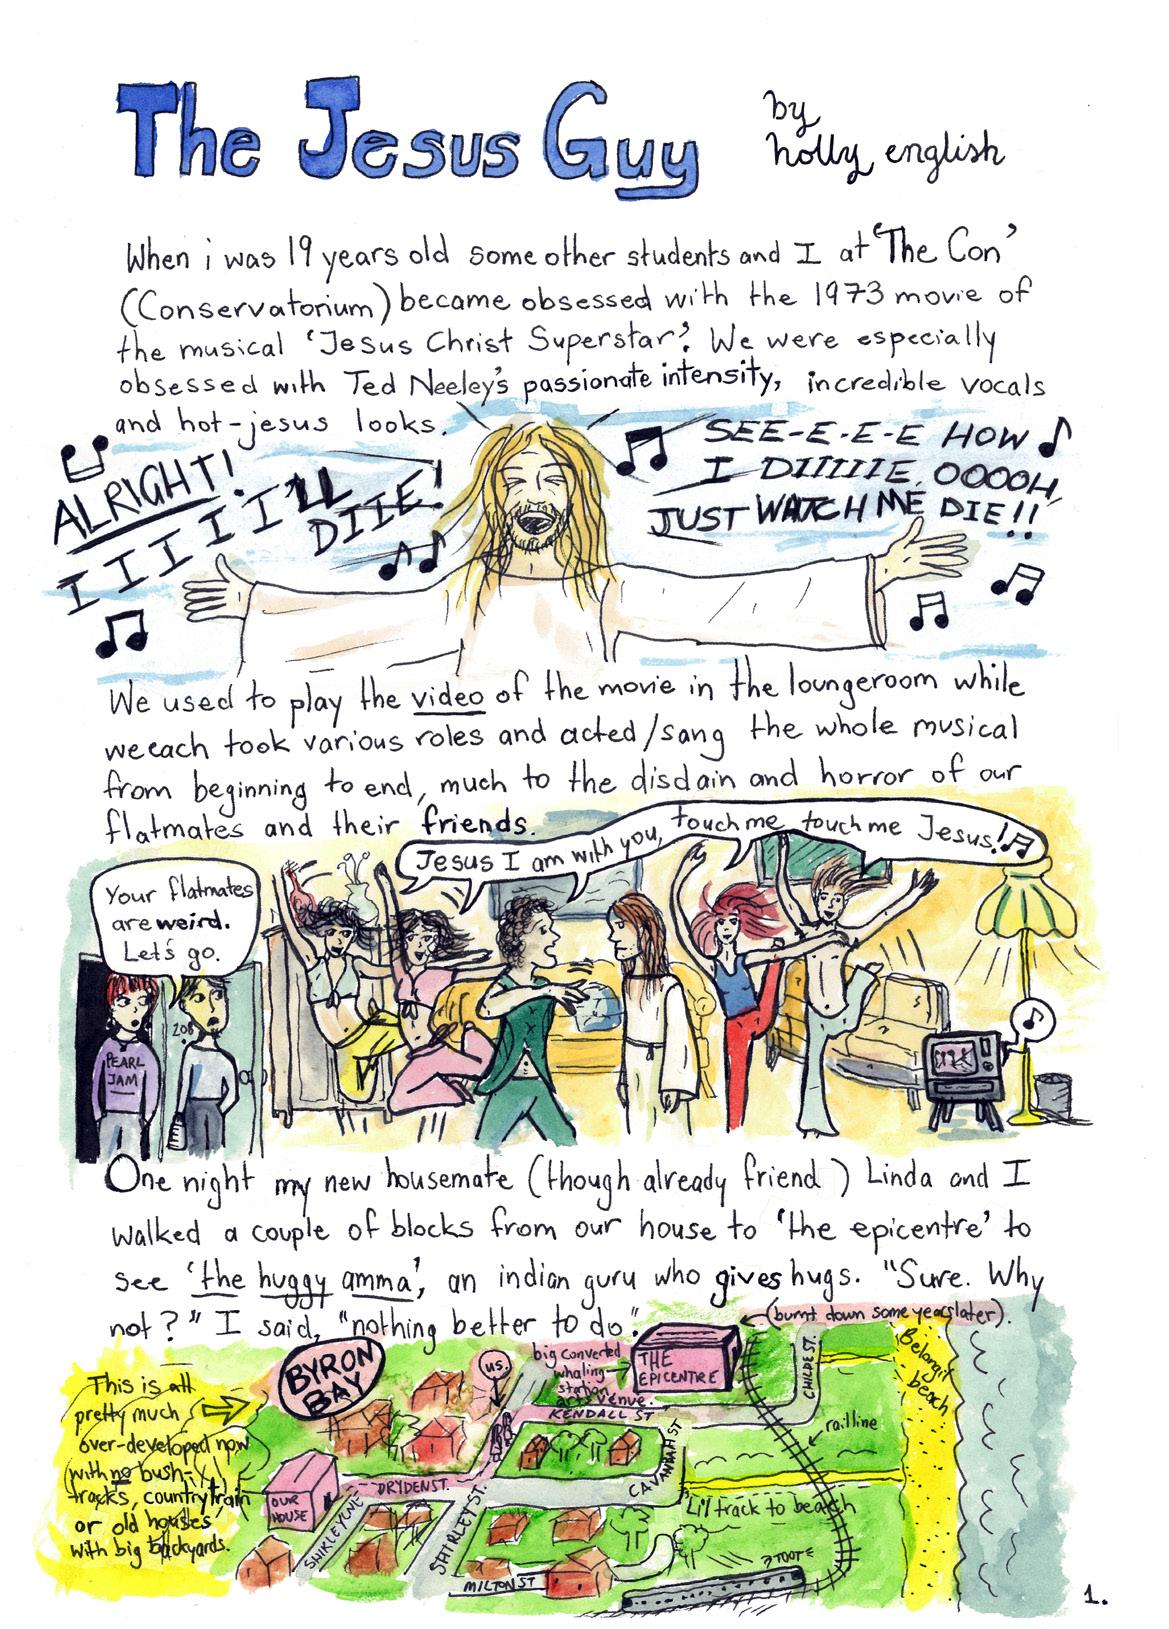 The Jesus Guy
by
holly english
When i was 19 years old some other students and I at 'The Con'
(Conservatorium) became obsessed with the 1973 movie of
the musical 'Jesus Christ Superstar'. We were especially
obsessed with Ted Neeley's passionate intensity, incredible vocals
and hot-jesus looks.
ALRIGHT!
I I I I I I'LL
DIIE!
SEE-E-E-E HOW
I DIIIIIE, OOOOH,
JUST WATCH ME DIE!!
We used to play the video of the movie in the loungeroom while
we each took various roles and acted/sang the whole musical
from beginning to end, much to the disdain and horror of our
flatmates and their friends.
Jesus I am with you, touch me touch me Jesus!
Your flatmates
are weird.
Let's go.
PEARL
JAM
One night my new housemate (though already friend) Linda and I
walked a couple of blocks from our house to 'the epicentre' to
see 'the huggy amma', an indian guru who gives hugs. "Sure. Why
not?" I said, "nothing better to do".
(burnt down some years later).
BYRON
BAY
us.
big converted
whaling
station
arts venue.
THE
EPICENTRE
CHILDE ST.
Belongil
beach
This is all
pretty much
over-developed now
with no bush-
tracks, country train
or old houses
with big backyards.
KENDALL ST
railline
CAVANBAH ST
DRYDEN ST.
OUR
HOUSE
SHIRLEY LNE
SHIRLEY ST.
Li'l track to beach
TOOT
MILTON ST
1.